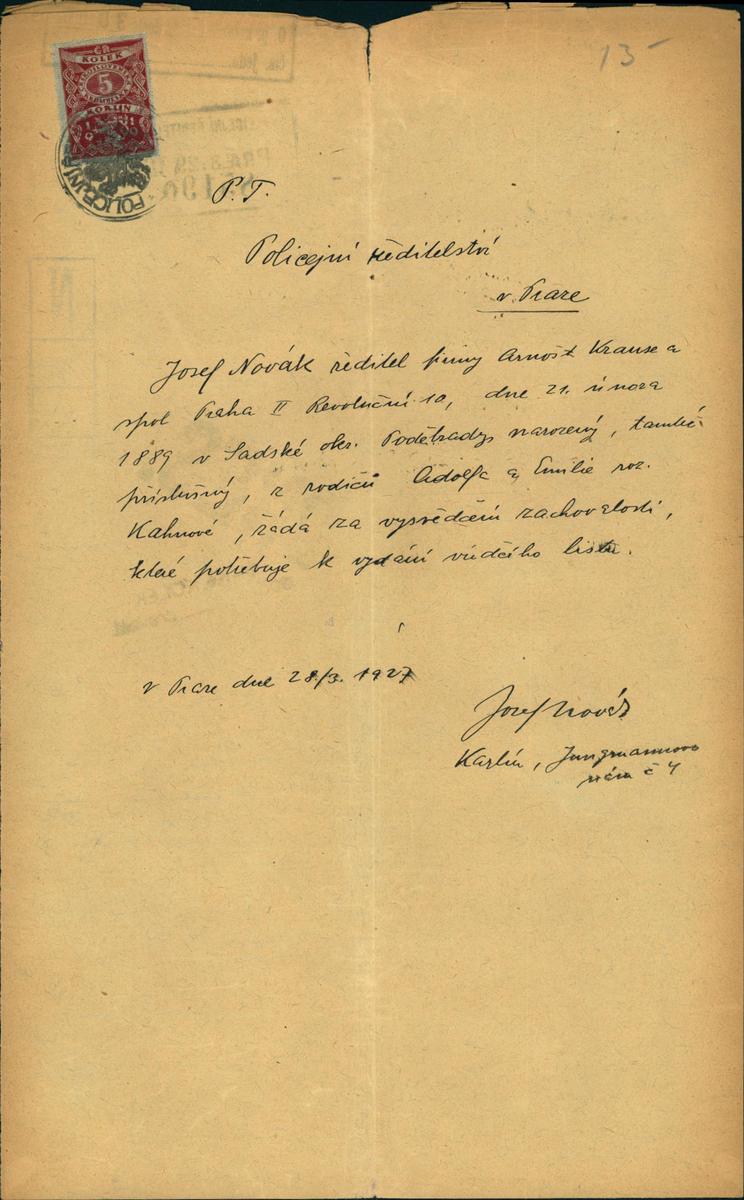 13
KOLEK
5
KORUN
POLICEJNÍ
P.T.
Policejní ředitelství
v Praze
Josef Novák ředitel firmy Arnošt Krause a
spol Praha II Revoluční 10, dne 21. února
1889 v Sadské okr. Poděbrady narozený, tamtéž
příslušný, z rodičů Adolfa a Emilie roz.
Kahnové, žádá za vysvědčení zachovalosti,
které potřebuje k vydání vůdčího listu.
v Praze dne 28/3. 1927
Josef Novák
Karlín, Jungmannova
ulica č 4